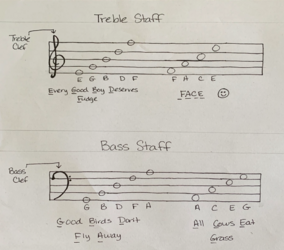 Treble Staff
Treble
Clef
E G B D F F A C E
Every Good Boy Deserves
Fudge
FACE
Bass Staff
Bass
Clef
G B D F A A C E G
Good Birds Don't
Fly Away
All Cows Eat
Grass